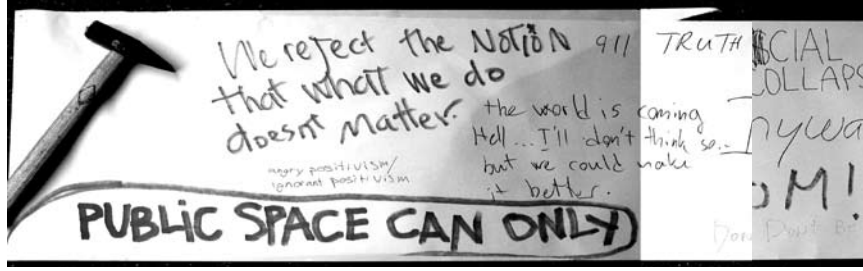 We reject the Notion
that what we do
doesnt Matter.
911 TRUTH
the world is coming
Hell ... I'll don't think so..
but we could make
it better.
angry positivism/
ignorant positivism
PUBLIC SPACE CAN ONLY
SOCIAL
COLLAPS
nywa
OM!
Dont Be